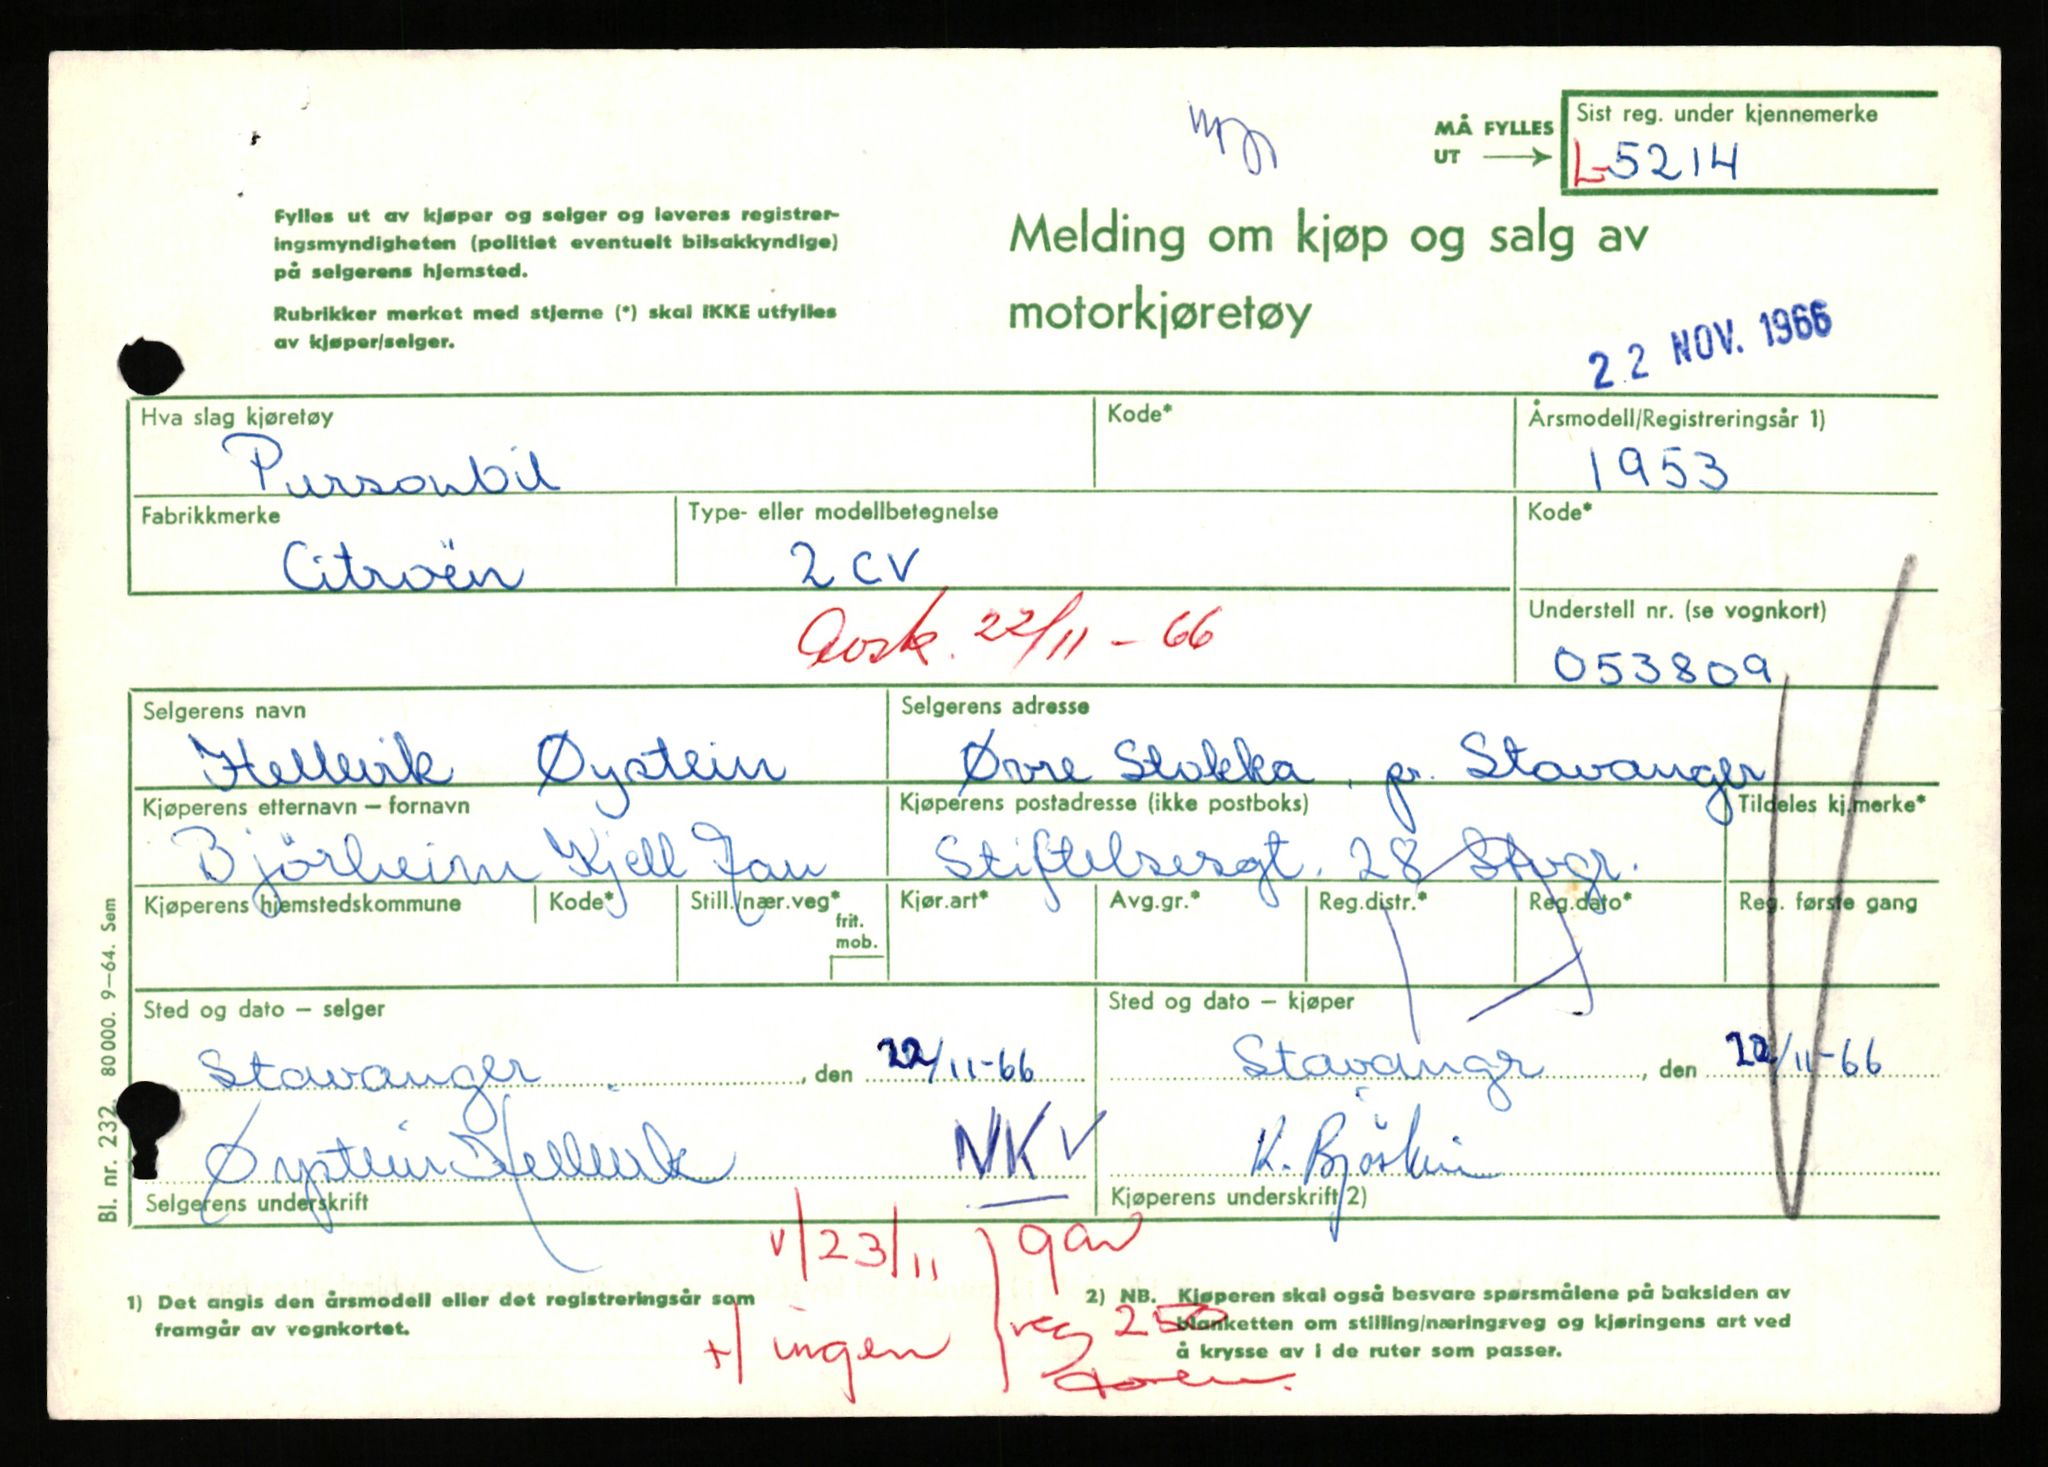 MÅ FYLLES
UT
Sist reg. under kjennemerke
L-5214
Fylles ut av kjøper og selger og leveres registrer-
ingsmyndigheten (politiet eventuelt bilsakkyndige)
på selgerens hjemsted.
Rubrikker merket med stjerne (*) skal IKKE utfylles
av kjøper/selger.
Melding om kjøp og salg av
motorkjøretøy
22 NOV. 1966
Hva slag kjøretøy
Personbil
Kode*
Årsmodell/Registreringsår 1)
1953
Fabrikkmerke
Citroën
Type- eller modellbetegnelse
2 CV
Kode*
Avsk. 22/11-66
Understell nr. (se vognkort)
053809
Selgerens navn
Hellevik Øystein
Selgerens adresse
Øvre Stokka pr. Stavanger
Kjøperens etternavn – fornavn
Bjørheim Kjell Jan
Kjøperens postadresse (ikke postboks)
Stiftelsesgt. 28 Stvgr.
Tildeles kj.merke*
Kjøperens hjemstedskommune
Kode*
Still./nær.veg*
frit.
mob.
Kjør.art*
Avg.gr.*
Reg.distr.*
Reg.dato*
Reg. første gang
Sted og dato – selger
Stavanger, den 22/11-66
Sted og dato – kjøper
Stavanger, den 22/11-66
Øystein Hellevik
NKV
K. Bjørheim
Selgerens underskrift
Kjøperens underskrift 2)
Bl. nr. 232. 80000. 9–64. Sem
v/23/11
+/ ingen
reg 250
1) Det angis den årsmodell eller det registreringsår som
framgår av vognkortet.
2) NB. Kjøperen skal også besvare spørsmålene på baksiden av
blanketten om stilling/næringsveg og kjøringens art ved
å krysse av i de ruter som passer.